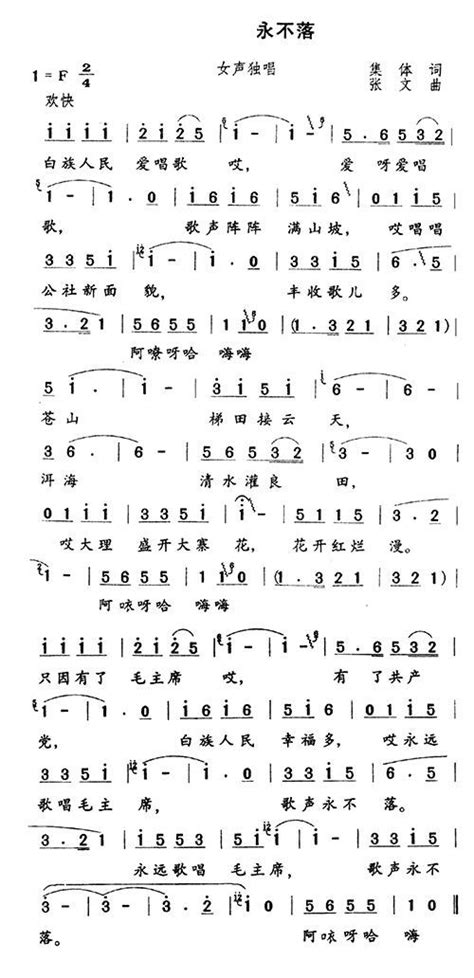 永不落
女声独唱
集体 词
1=F 2/4
张文 曲
欢快
i i i i | 2 i 2 5 | i - | i - | 5. 6 5 3 2 |
白族人民 爱唱歌 哎, 爱 呀爱唱
i - | i . 0 | i 6 i 6 | i 5 6 | 0 i i 5 |
歌, 歌声阵阵 满山坡, 哎唱唱
3 3 5 i | i - | i . 0 | 3 3 i 5 | 6 . 5 |
公社新面 貌, 丰收歌儿 多。
3 . 2 1 | 5 6 5 5 | 1 i 0 | (1 . 3 2 1 | 3 2 1) |
阿嘹呀哈 嗨嗨
5 i . | i - | 3 i 5 i | 6 - | 6 - |
苍山 梯田接云 天,
3 6 . | 6 - | 5 6 5 3 2 | 3 - | 3 0 |
洱海 清水灌良 田,
0 i i i | 3 3 5 i | i - | 5 1 1 5 | 3 . 2 |
哎大理 盛开大寨 花, 花开红烂 漫。
i - | 5 6 5 5 | 1 i 0 | (1 . 3 2 1 | 3 2 1) |
阿咴呀哈 嗨嗨
i i i i | 2 i 2 5 | i - | i - | 5 . 6 5 3 2 |
只因有了 毛主席 哎, 有 了共产
i - | i . 0 | i 6 i 6 | i 5 6 | 0 i i 5 |
党, 白族人民 幸福多, 哎永远
3 3 5 i | i - | i . 0 | 3 3 i 5 | 6 . 5 |
歌唱毛主 席, 歌声永不 落。
3 . 2 1 | i 5 5 3 | 5 i i | i - | i 5 5 3 |
永远歌唱 毛主席, 歌声永不
3 - | 3 - | 3 . 2 | i 0 | 5 6 5 5 | 1 0 ‖
落。 阿咴呀哈 嗨